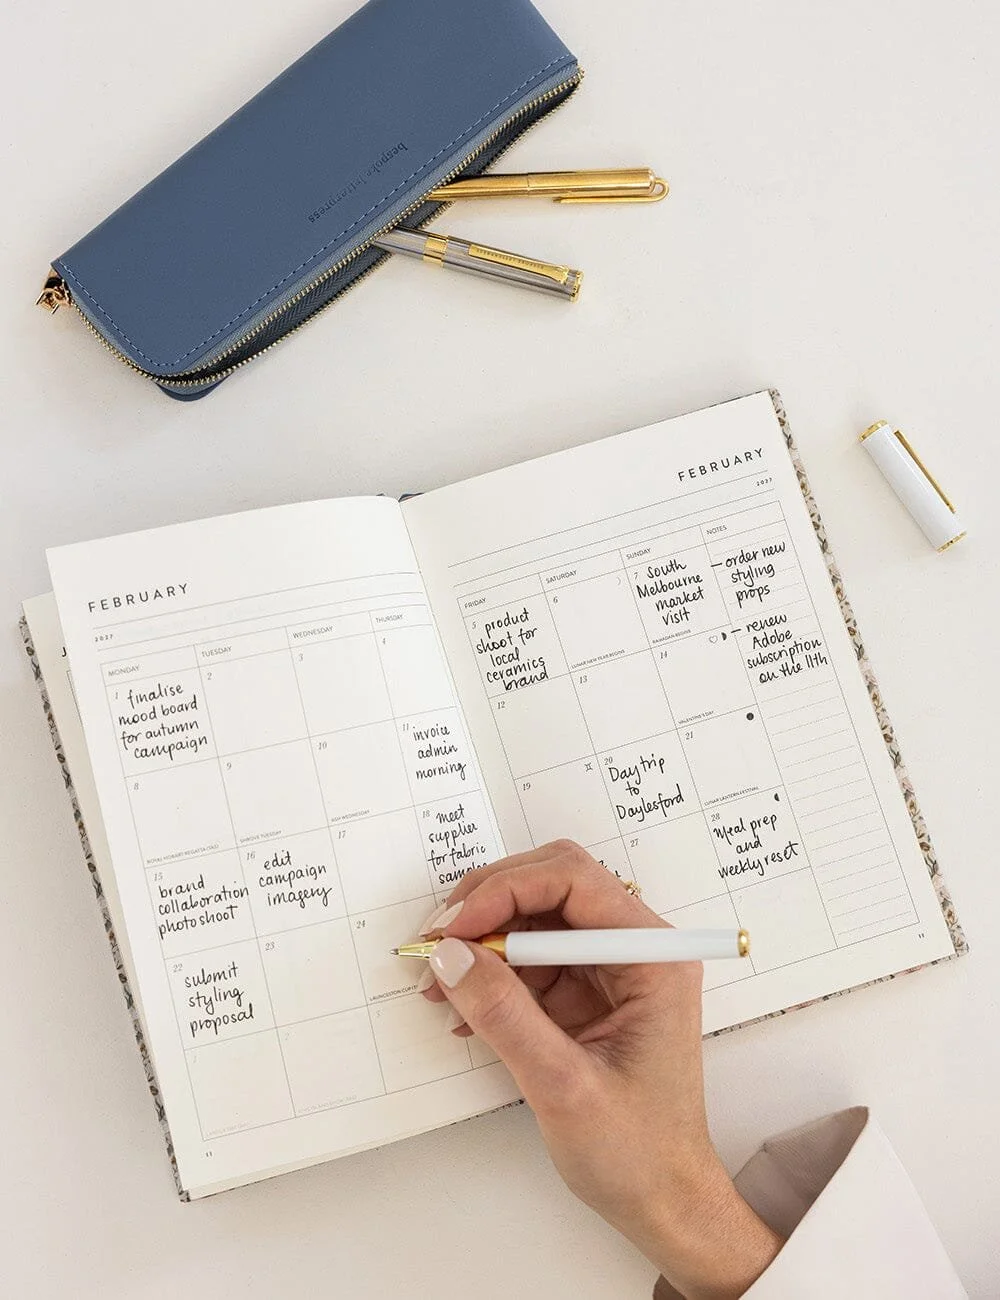 bespoke letterpress
FEBRUARY
2027
MONDAY
TUESDAY
WEDNESDAY
THURSDAY
1
finalise
mood board
for autumn
campaign
2
3
4
8
ROYAL HOBART REGATTA (TAS)
9
SHROVE TUESDAY
10
ASH WEDNESDAY
11
invoice
admin
morning
15
brand
collaboration
photoshoot
16
edit
campaign
imagery
17
18
meet
supplier
for fabric
samples
22
submit
styling
proposal
23
24
LAUNCESTON CUP
1
2
3
11
FEBRUARY
2027
FRIDAY
SATURDAY
SUNDAY
NOTES
5
product
shoot for
local
ceramics
brand
6
LUNAR NEW YEAR BEGINS
7
South
Melbourne
market
visit
RAMADAN BEGINS
– order new
styling
props
– renew
Adobe
subscription
on the 11th
12
13
14
VALENTINE'S DAY
19
20
Day trip
to
Daylesford
21
LUNAR LANTERN FESTIVAL
27
28
Meal prep
and
weekly reset
11